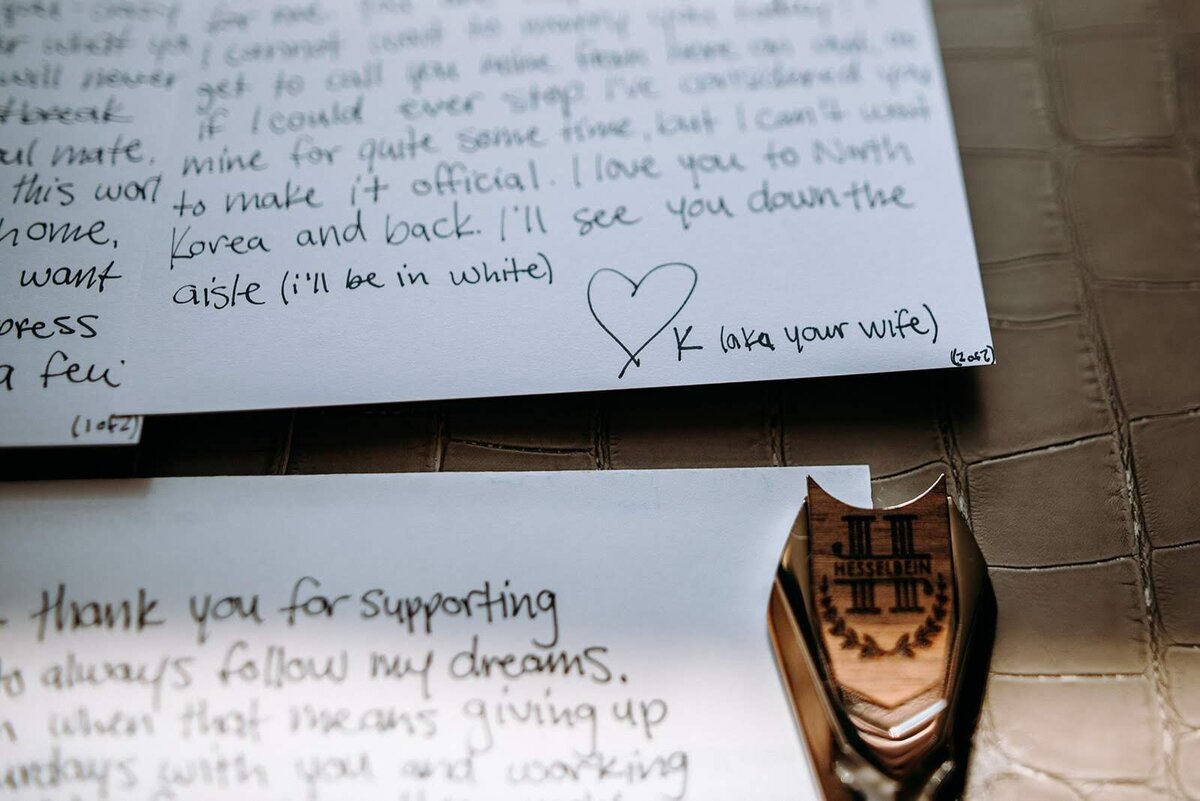 will never
break
ul mate.
this worl
home,
want
press
a few
(1 of 2)
for me. You are
I cannot wait to marry you today! I
get to call you mine from here on out, as
if I could ever stop. I've considered you
mine for quite some time, but I can't wait
to make it official. I love you to North
Korea and back. I'll see you down the
aisle (i'll be in white)
K (aka your wife)
(2 of 2)
thank you for supporting
to always follow my dreams.
when that means giving up
with you and working
HESSELBEIN